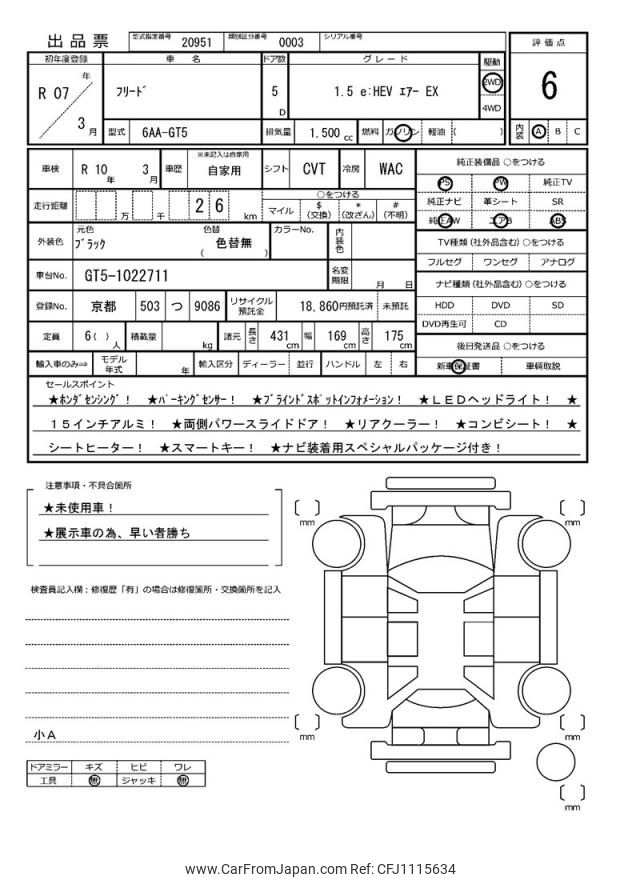 出品票 型式指定番号 20951 類別区分番号 0003 シリアル番号
評価点
6
内装 A B C
初年度登録 車名 ドア数 グレード 駆動
R 07 年 3 月 フリード 5 D 1.5 e:HEV エアー EX 2WD
4WD
型式 6AA-GT5 排気量 1.500 cc 燃料 ガソリン 軽油 ( )
車検 R 10 年 3 月 車歴 ※未記入は自家用 自家用 シフト CVT 冷房 WAC
走行距離 万 千 2 6 km ○をつける
マイル $(交換) *(改ざん) #(不明)
外装色 元色 ブラック 色替 ( 色替無 ) カラーNo. 内装色
車台No. GT5-1022711 名変期限 月 日
登録No. 京都 503 つ 9086 リサイクル預託金 18,860円預託済 未預託
定員 6( )人 積載量 kg 諸元 長さ 431 cm 幅 169 cm 高さ 175 cm
輸入車のみ⇒ モデル年式 年 輸入区分 ディーラー 並行 ハンドル 左 右
純正装備品 ○をつける
PS PW 純正TV
純正ナビ 革シート SR
純正AW エアB ABS
TV種類 (社外品含む) ○をつける
フルセグ ワンセグ アナログ
ナビ種類 (社外品含む) ○をつける
HDD DVD SD
DVD再生可 CD
後日発送品 ○をつける
新車保証書 車輌取説
セールスポイント
★ホンダセンシング! ★パーキングセンサー! ★ブラインドスポットインフォメーション! ★LEDヘッドライト! ★
15インチアルミ! ★両側パワースライドドア! ★リアクーラー! ★コンビシート! ★
シートヒーター! ★スマートキー! ★ナビ装着用スペシャルパッケージ付き!
注意事項・不具合箇所
★未使用車!
★展示車の為、早い者勝ち
検査員記入欄:修復歴「有」の場合は修復箇所・交換箇所を記入
小A
ドアミラー キズ ヒビ ワレ
工具 無 ジャッキ 無
mm
mm
mm
mm
mm
www.CarFromJapan.com Ref: CFJ1115634